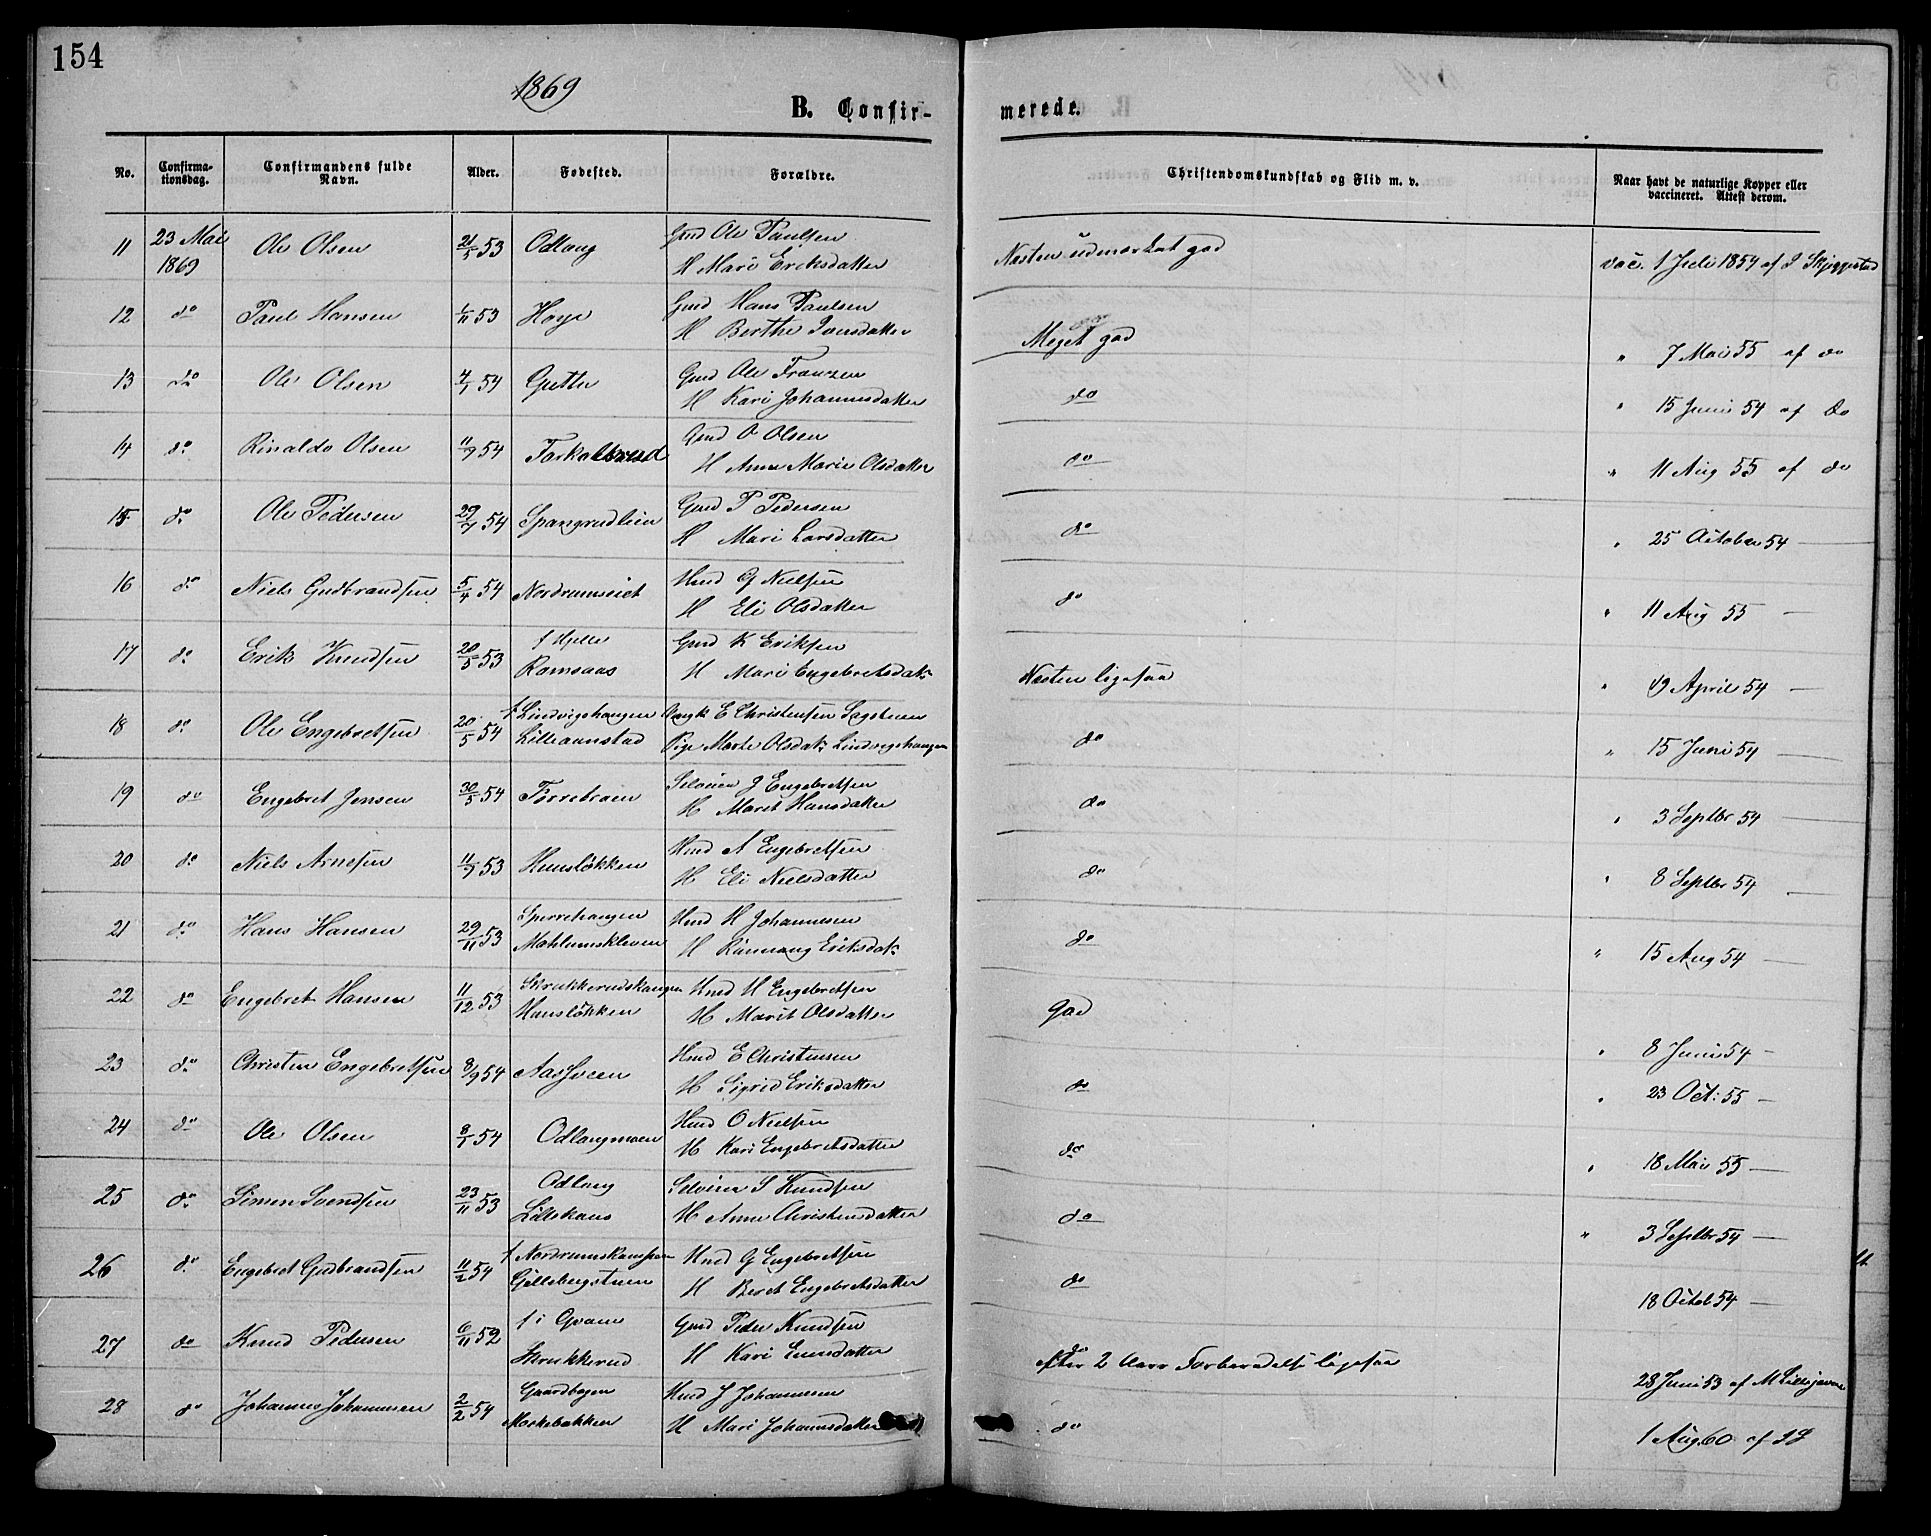 154
1869
B. Confir- merede.
No. Confirma-tionsdag. Confirmandens fulde Navn. Alder. Fødested. Forældre. Christendomskundskab og Flid m. v. Naar havt de naturlige Kopper eller vaccineret. Attest derom.
11 23 Mai 1869 Ole Olsen 21/5 53 Odlaug Gmd Ole Paulsen
H Mari Eriksdatter Næsten udmærket god vac. 1 Juli 1854 af J Skjeggestad
12 do Paul Hansen 1/11 53 Høye Gmd Hans Paulsen
H Berthe Iversdatter Meget god " 7 Mai 55 af do
13 do Ole Olsen 4/1 54 Gutte Gmd Ole Franzen
H Kari Johannesdatter do " 15 Juni 54 af do
14 do Rinaldo Olsen 11/9 54 Gmd O Olsen
H Anne Marie Olsdatter do " 11 Aug 55 af do
15 do Ole Pedersen 29/7 54 Spangrudlien Gmd P Pedersen
H Mari Larsdatter do " 25 October 54 —
16 do Niels Gudbrandsen 5/4 54 Nordrumseiet Hmd G Nielsen
H Eli Olsdatter do " 11 Aug 55 —
17 do Erik Knudsen 20/5 53 f Hjelle
Ramsaas Gmd K Eriksen
H Mari Engebretsdatr Næsten ligesaa " 19 April 54 —
18 do Ole Engebretsen 20/5 54 f Lindvigshaugen
Lilleaanstad Ungk E Christensen
Pige Marte Olsdatr Lindvigshaugen do " 15 Juni 54 —
19 do Engebret Jensen 30/5 54 Selveier J Engebretsen
H Marit Hansdatter do " 3 Septbr 54 —
20 do Niels Arnesen 11/9 53 Hunsløkken Hmd A Engebretsen
H Eli Nielsdatter do " 8 Septbr 54 —
21 do Hans Hansen 29/11 53 Sperrehaugen
Mæhlumskleven Hmd H Johannesen
H Rønnaug Eriksdatr do " 15 Aug 54 —
22 do Engebret Hansen 11/12 53 Skrukkerudshaugen
Hunsløkken Hmd H Engebretsen
H Marit Olsdatter God
23 do Christen Engebretsen 8/9 54 Aassveen Hmd E Christensen
H Sigrid Eriksdatter do " 8 Juni 54 —
" 23 Oct: 55 —
24 do Ole Olsen 8/1 54 Odlaugmoen Hmd O Nielsen
H Kari Engebretsdatter do " 18 Mai 55 —
25 do Simen Svendsen 23/11 53 Odlaug
Lillehaus Selveier S Knudsen
H Anne Christensdatter do " 3 Septbr 54 —
26 do Engebret Gudbrandsen 11/2 54 f Nordrumshaugen
Gillebergstuen Hmd G Engebretsen
H Beret Engebretsdatter do 18 Octob 54 —
27 do Knud Pedersen 6/11 52 f i Qvam
Skrukkerud Gmd Peder Knudsen
H Kari Evensdatter do
efter 2 Aars Forberedelse ligesaa 28 Juni 53 af M
28 do Johannes Johannesen 2/2 54 Gaardbogen
Mørkebakken Hmd J Johannesen
H Mari Johannsdatter do 1 Aug 60 af